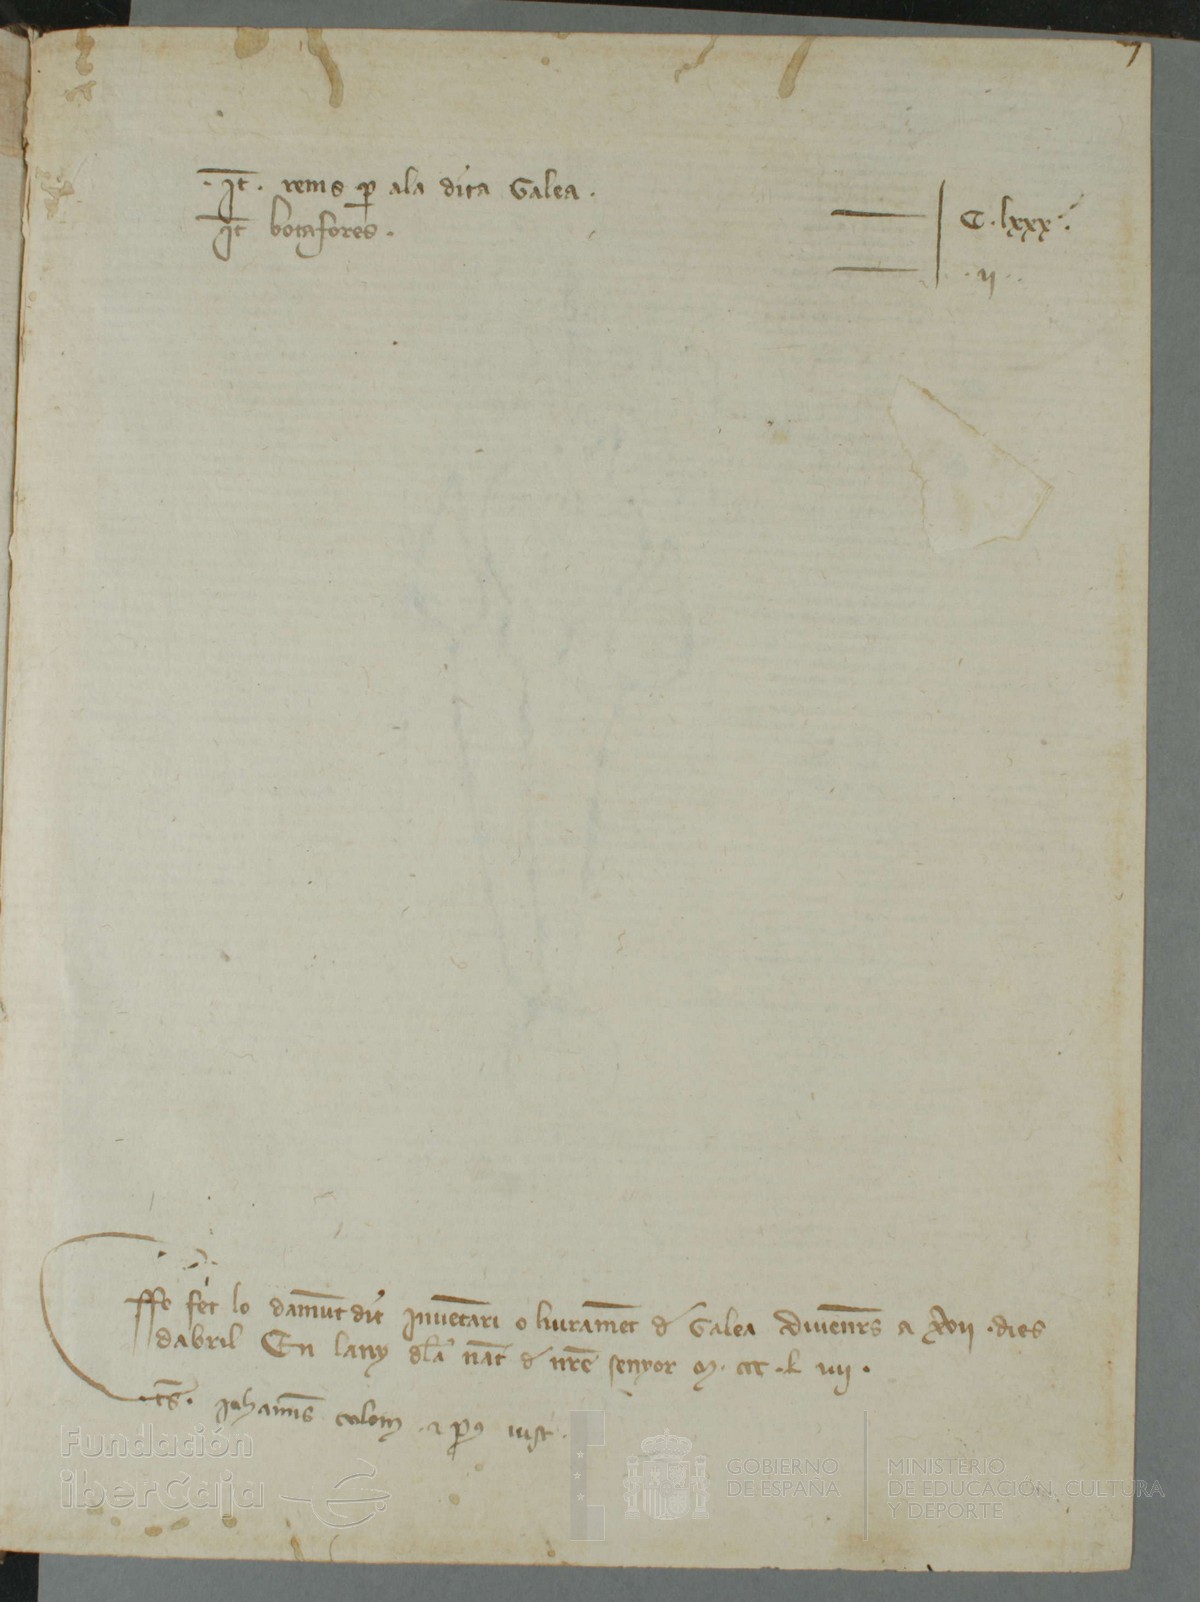 7
·It· rems p ala dita Galea · C·lxxx·
It botafores · ·ij·
ffo fet lo damunt dit Inuentari o liurament d Galea diuenrs a xvij ·dies
dabril En lany dla nat d nre senyor M· ccc ·L vij ·
·ts· Johannes colom
Fundación
iberCaja
GOBIERNO
DE ESPAÑA
MINISTERIO
DE EDUCACIÓN, CULTURA
Y DEPORTE